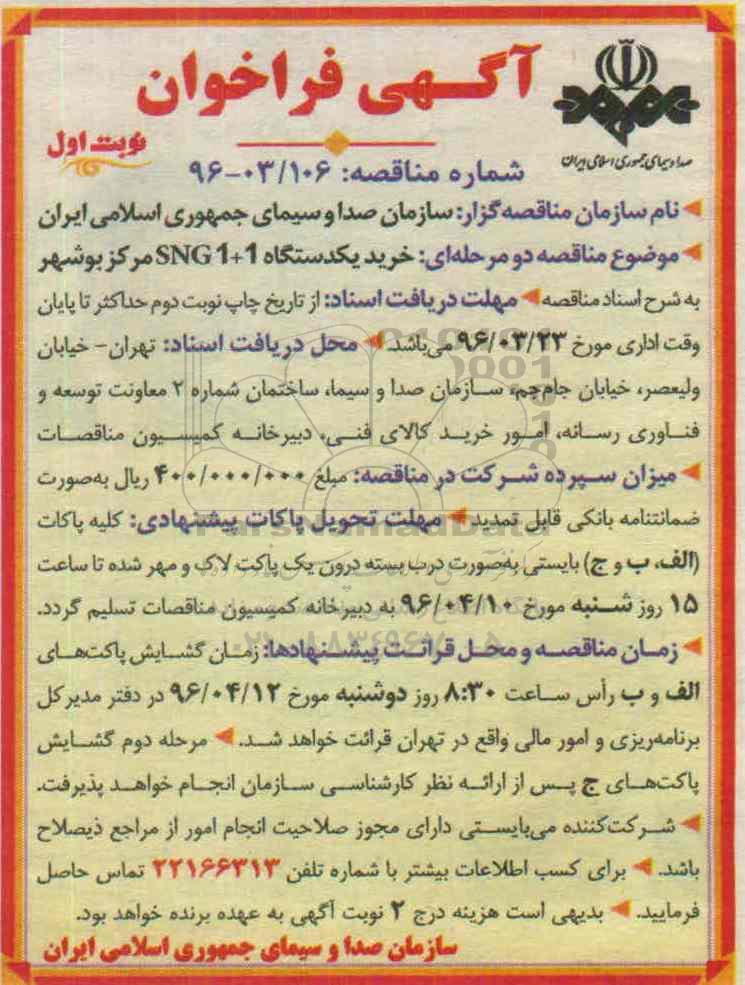 آگهی فراخوان
صدا و سیمای جمهوری اسلامی ایران
نوبت اول
شماره مناقصه: ۹۶-۰۳/۱۰۶
نام سازمان مناقصه‌گزار: سازمان صدا و سیمای جمهوری اسلامی ایران
موضوع مناقصه دو مرحله‌ای: خرید یکدستگاه SNG 1+1 مرکز بوشهر
به شرح اسناد مناقصه مهلت دریافت اسناد: از تاریخ چاپ نوبت دوم حداکثر تا پایان
وقت اداری مورخ ۹۶/۰۳/۲۳ می‌باشد. محل دریافت اسناد: تهران - خیابان
ولیعصر، خیابان جام‌جم، سازمان صدا و سیما، ساختمان شماره ۲ معاونت توسعه و
فناوری رسانه، امور خرید کالای فنی، دبیرخانه کمیسیون مناقصات
میزان سپرده شرکت در مناقصه: مبلغ ۴۰۰/۰۰۰/۰۰۰ ریال به‌صورت
ضمانتنامه بانکی قابل تمدید مهلت تحویل پاکات پیشنهادی: کلیه پاکات
(الف، ب و ج) بایستی به‌صورت درب بسته درون یک پاکت لاک و مهر شده تا ساعت
۱۵ روز شنبه مورخ ۹۶/۰۴/۱۰ به دبیرخانه کمیسیون مناقصات تسلیم گردد.
زمان مناقصه و محل قرائت پیشنهادها: زمان گشایش پاکت‌های
الف و ب رأس ساعت ۸:۳۰ روز دوشنبه مورخ ۹۶/۰۴/۱۲ در دفتر مدیر کل
برنامه‌ریزی و امور مالی واقع در تهران قرائت خواهد شد. مرحله دوم گشایش
پاکت‌های ج پس از ارائه نظر کارشناسی سازمان انجام خواهد پذیرفت.
شرکت‌کننده می‌بایستی دارای مجوز صلاحیت انجام امور از مراجع ذیصلاح
باشد. برای کسب اطلاعات بیشتر با شماره تلفن ۲۲۱۶۶۳۱۳ تماس حاصل
فرمایید. بدیهی است هزینه درج ۲ نوبت آگهی به عهده برنده خواهد بود.
سازمان صدا و سیمای جمهوری اسلامی ایران